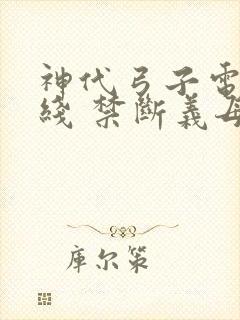 神代弓子電
綫 禁斷義母
库尔策